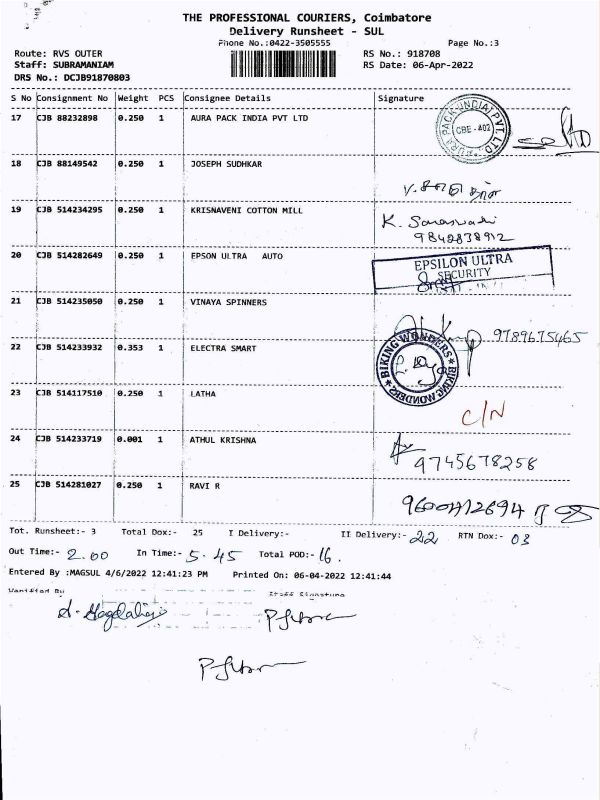 THE PROFESSIONAL COURIERS, Coimbatore
Delivery Runsheet - SUL
Phone No.:0422-3505555 Page No.:3
Route: RVS OUTER RS No.: 918708
Staff: SUBRAMANIAM RS Date: 06-Apr-2022
DRS No.: DCJB91870803
S No Consignment No Weight PCS Consignee Details Signature
17 CJB 88232898 0.250 1 AURA PACK INDIA PVT LTD AURA PACK INDIA PVT. LTD. CBE - 402
18 CJB 88149542 0.250 1 JOSEPH SUDHKAR
19 CJB 514234295 0.250 1 KRISNAVENI COTTON MILL K. Saraswathi
9842838912
20 CJB 514282649 0.250 1 EPSON ULTRA AUTO EPSILON ULTRA
SECURITY
21 CJB 514235050 0.250 1 VINAYA SPINNERS
9789675465
22 CJB 514233932 0.353 1 ELECTRA SMART BIKING WONDERS * BIKING WONDERS *
23 CJB 514117510 0.250 1 LATHA
C/N
24 CJB 514233719 0.001 1 ATHUL KRISHNA
9745678258
25 CJB 514281027 0.250 1 RAVI R
Tot. Runsheet:- 3 Total Dox:- 25 I Delivery:- II Delivery:- 22 RTN Dox:- 03
Out Time:- 2.00 In Time:- 5.45 Total POD:- 16.
Entered By :MAGSUL 4/6/2022 12:41:23 PM Printed On: 06-04-2022 12:41:44
Verified By Staff Signature